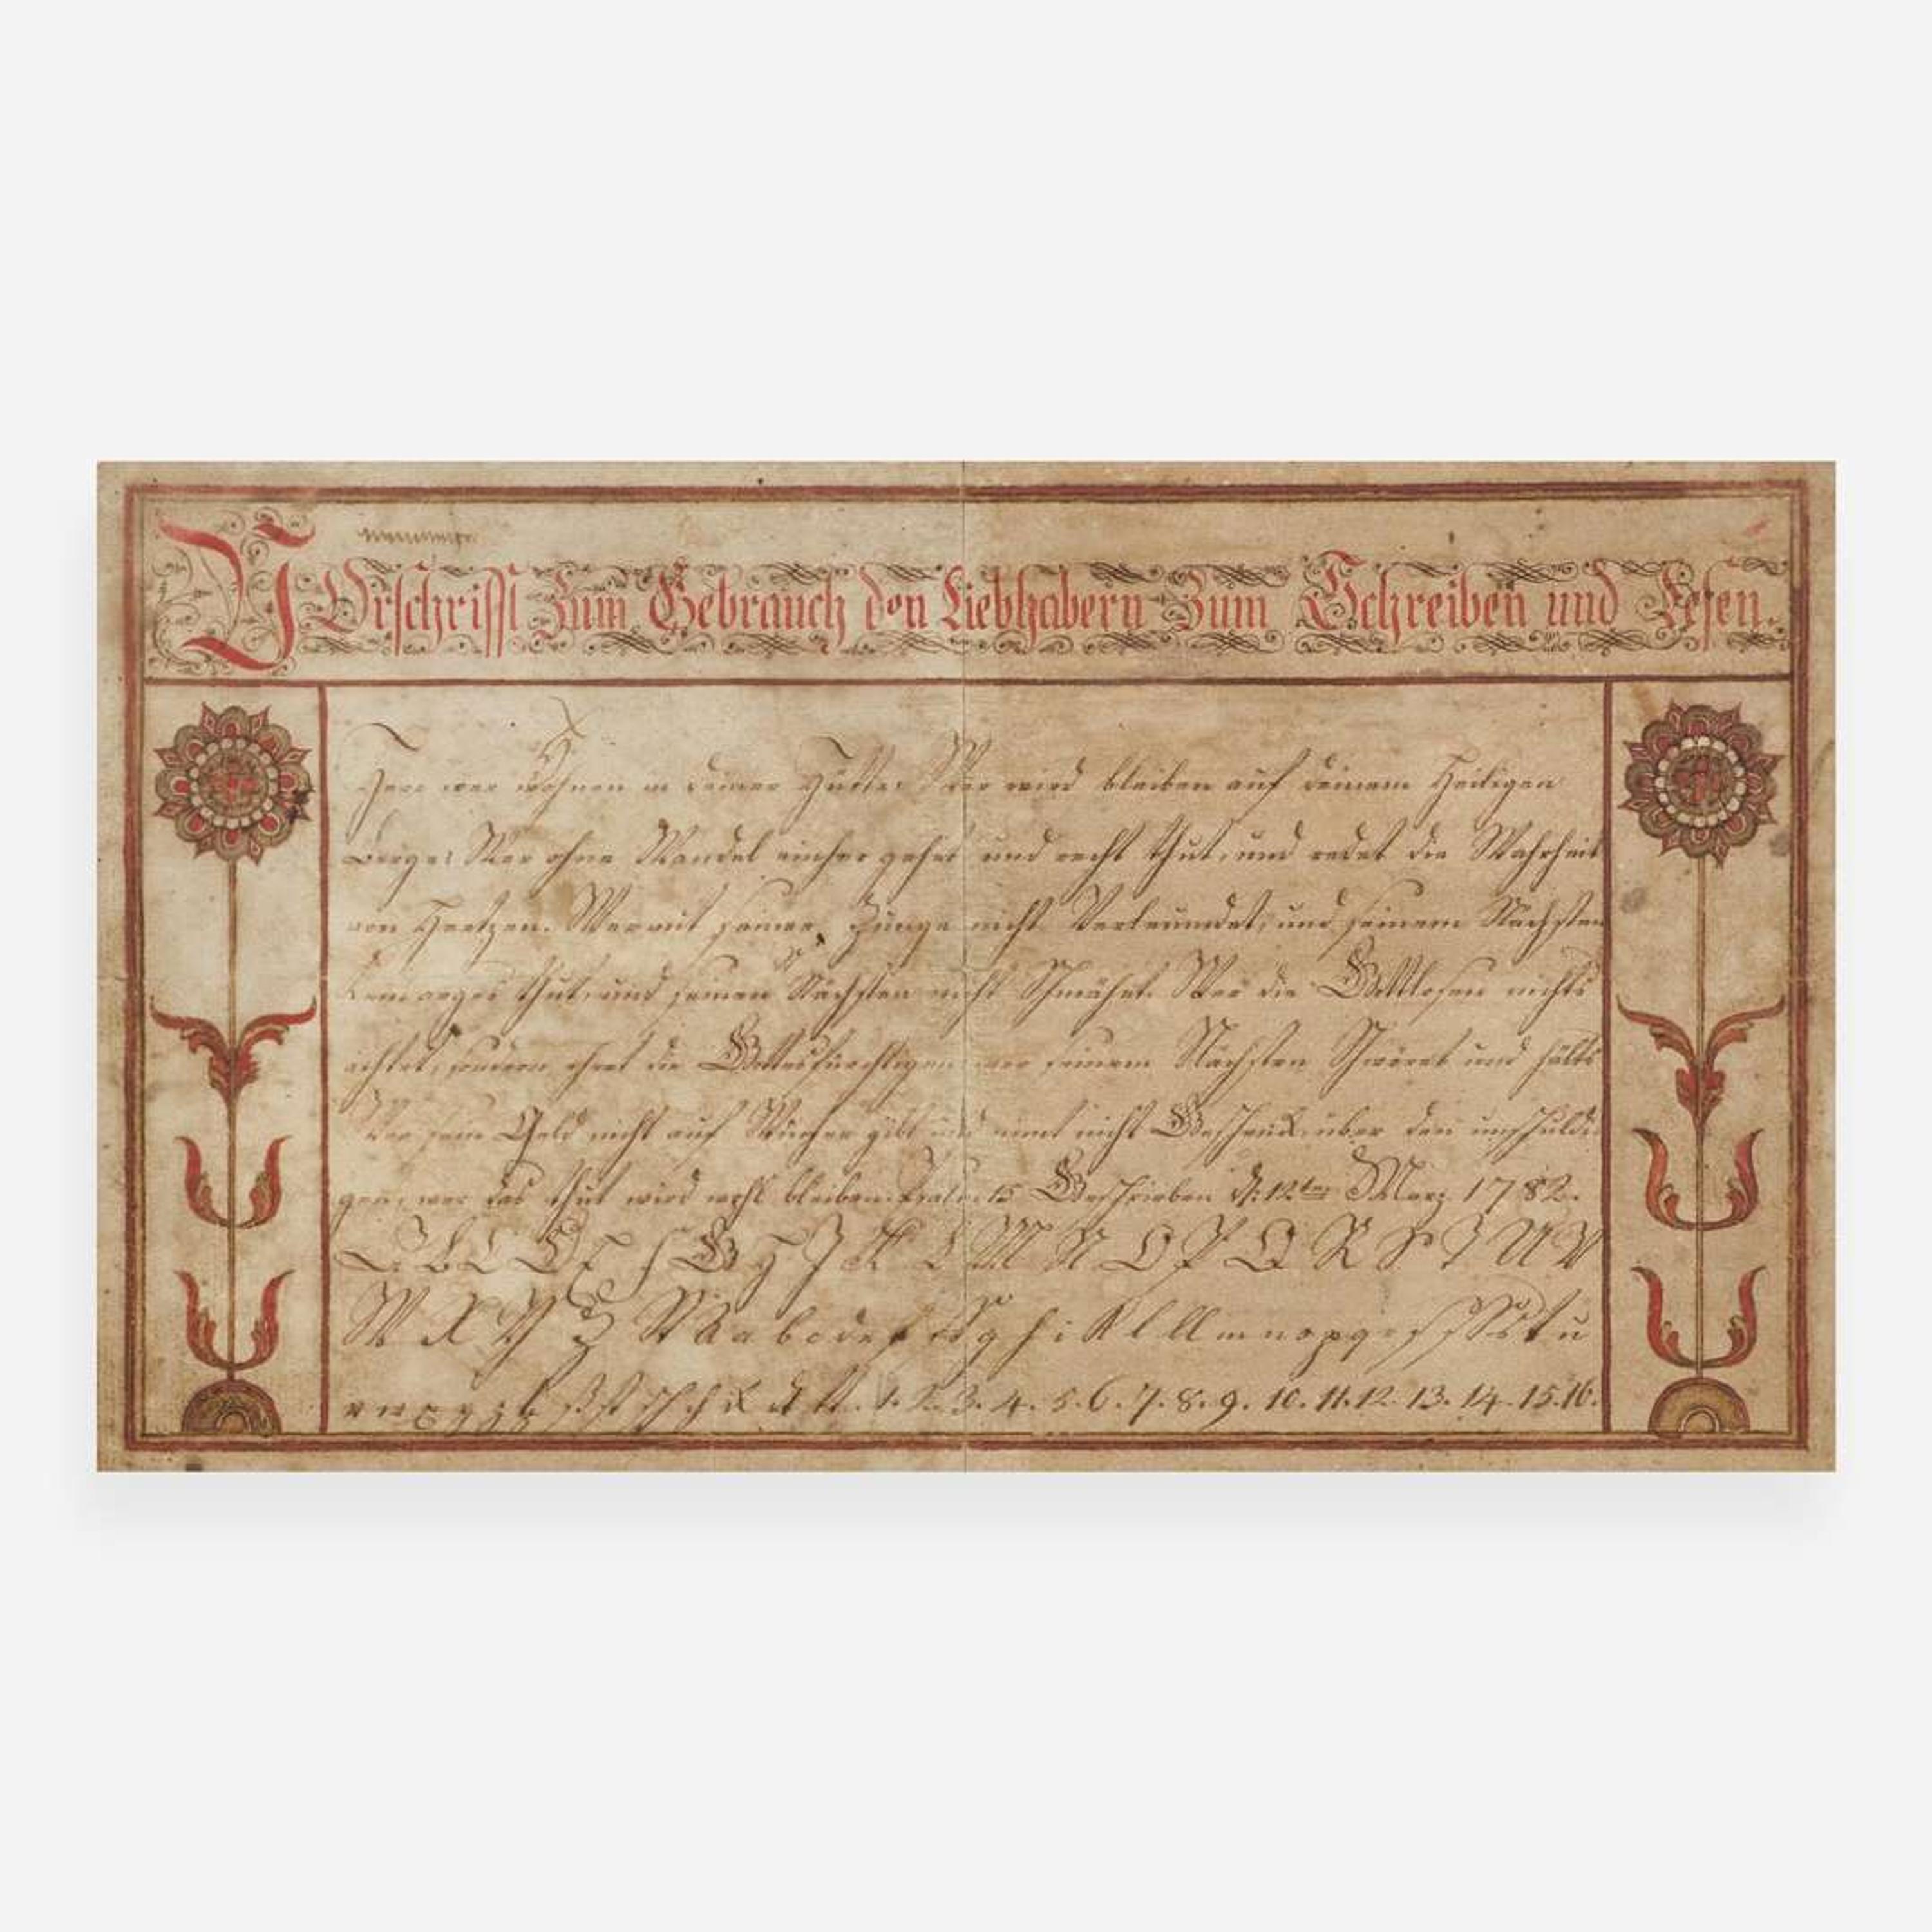 VOrschrifft Zum Gebrauch den Liebhabern Zum Schreiben und Lesen.
Herr wer wird wohnen in deiner Hütte: Wer wird bleiben auf deinem Heiligen
Berge: Wer ohne Wandel einher gehet und recht thut, und redet die Wahrheit
von Hertzen. Wer mit seiner Zunge nicht Verleumdet, und seinem Nächsten
kein arges thut, und seinen Nächsten nicht Schmähet. Wer die Gottlosen nichts
achtet, sondern ehret die Gottesfürchtigen wer seinem Nächsten Schwöret und hälts
Wer sein Geld nicht auf Wucher gibt und nimt nicht Geschenck über den unschuldi-
gen, wer das thut wird wohl bleiben. Psalm 15 Geschrieben d: 12ten Merz 1782.
A B C D E F G H J K L M N O P Q R S T U V
W X Y Z a b c d e f g h i k l ll m n o p q r s t u
v w x y z 1. 2. 3. 4. 5. 6. 7. 8. 9. 10. 11. 12. 13. 14. 15. 16.